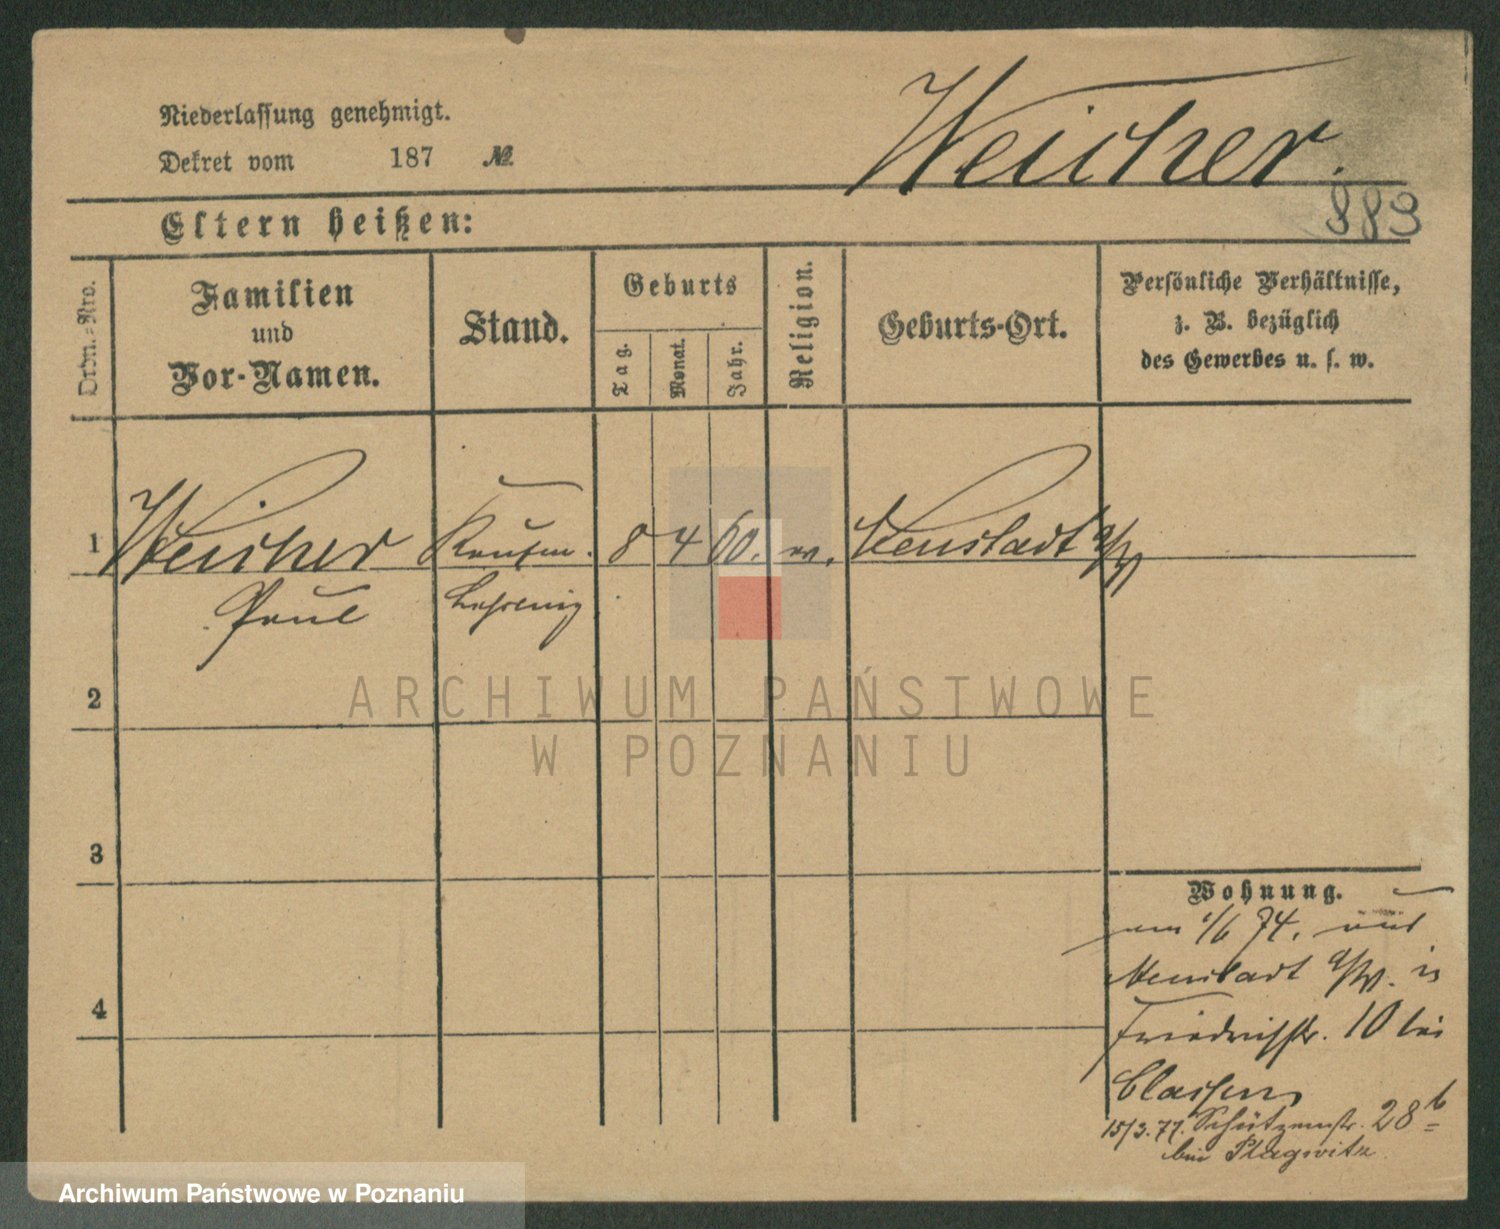 Niederlassung genehmigt.
Dekret vom 187 №
Weicher.
883
Eltern heißen:
Ordn.-Nro.
Familien
und
Vor-Namen.
Stand.
Geburts
Tag.
Monat.
Jahr.
Religion.
Geburts-Ort.
Persönliche Verhältnisse,
z. B. bezüglich
des Gewerbes u. s. w.
1 Weicher Kaufm. 8 4 60. Neustadt a/W
Paul Lehrling
2
ARCHIWUM PAŃSTWOWE
W POZNANIU
3
4
Wohnung.
1/6 74.
Neustadt a/W. in
Friedrichstr. 10 bei
Classen
15/3. 77. Schützenstr. 28 b
bei Plagwitz
Archiwum Państwowe w Poznaniu